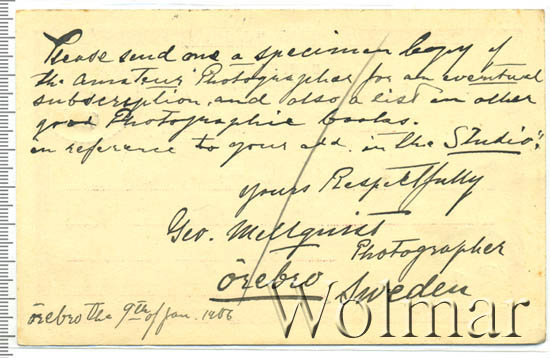 Please send one a specimen Copy of
the Amateur Photographer for an eventual
subscription, and also a list on other
good Photographic books.
in reference to your add. in the "Studio".
yours Respectfully
Geo. Mellquist
Photographer
Örebro, Sweden
Örebro the 9th of Jan. 1906
Wolmar